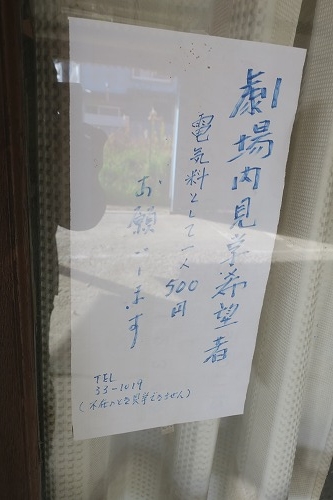 劇場内見学希望者
電気料として一人500円
お願いします
TEL
33-1019
(不在のとき見学できません)